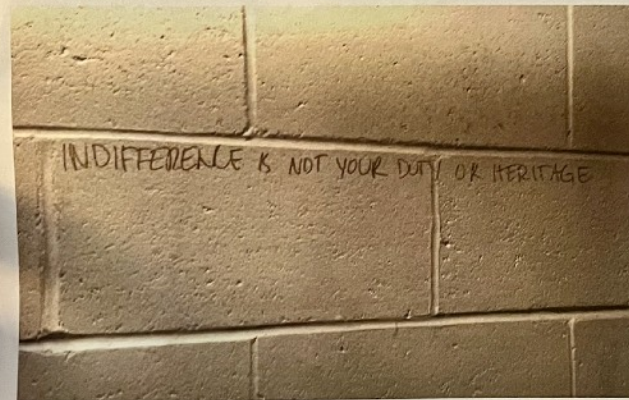 INDIFFERENCE IS NOT YOUR DUTY OR HERITAGE